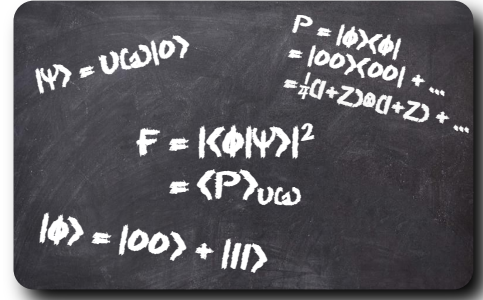 |Ψ⟩ = U(ω)|0⟩
P = |ϕ⟩⟨ϕ|
= |00⟩⟨00| + ...
= ¼(I+Z)⊗(I+Z) + ...
F = |⟨ϕ|Ψ⟩|²
= ⟨P⟩U(ω)
|ϕ⟩ = |00⟩ + |11⟩